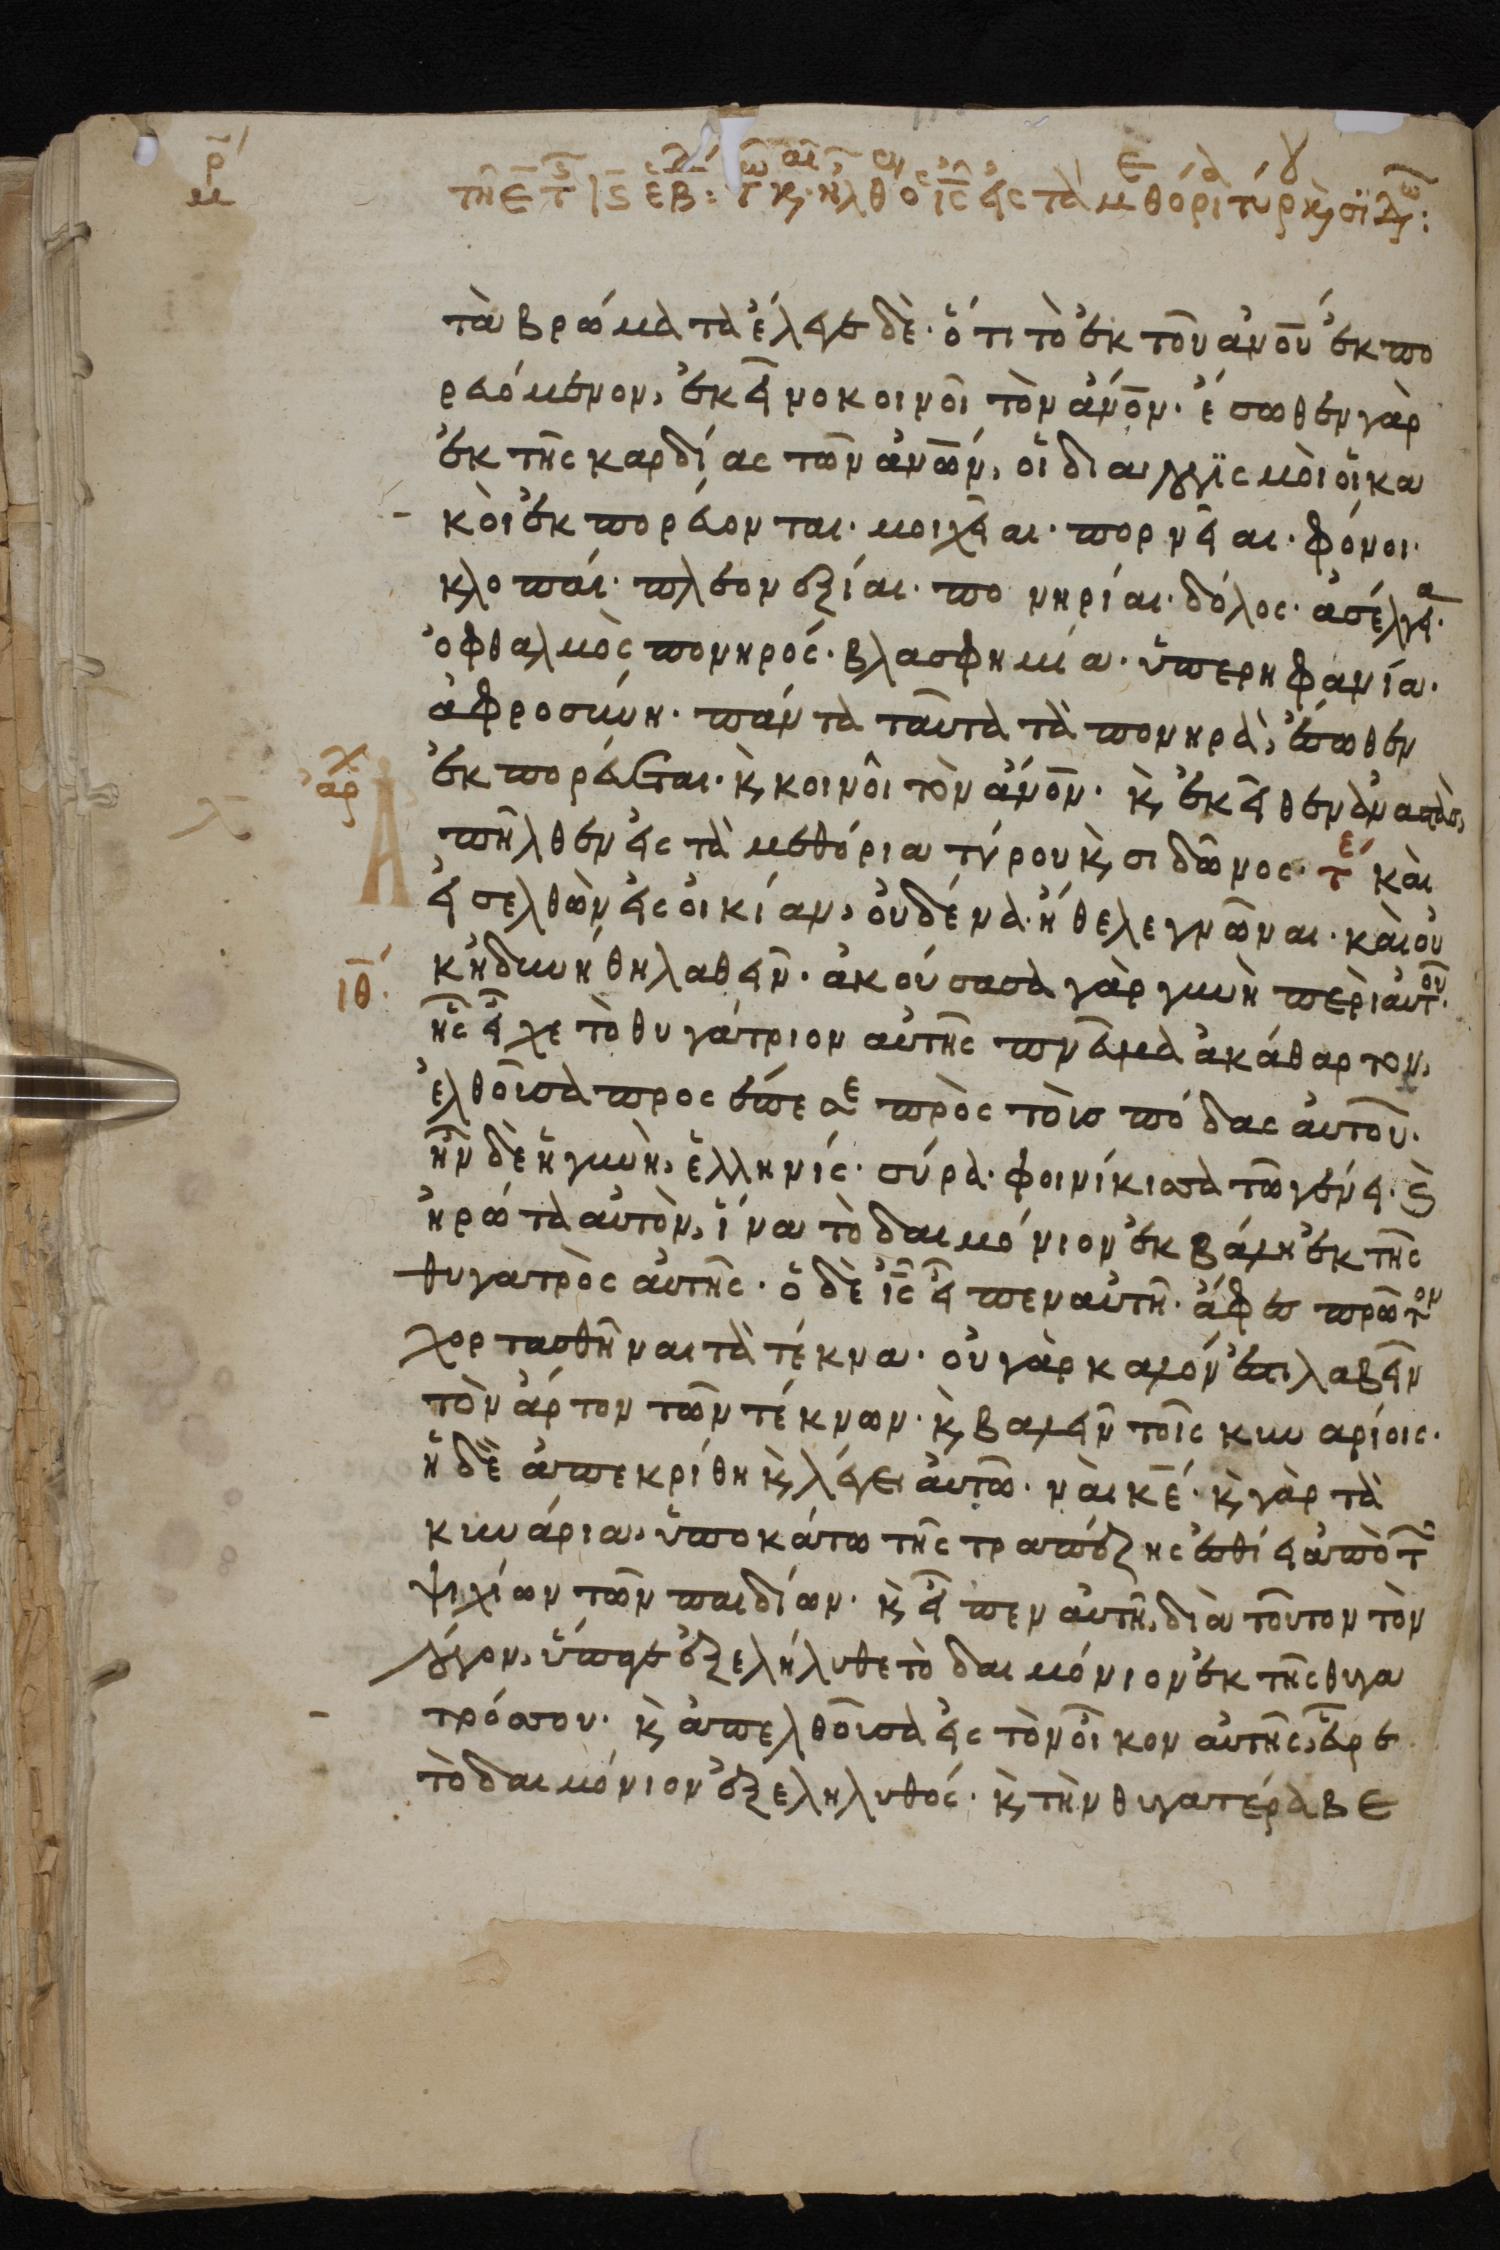 μρ
τῆ ε τ ις ἑβ: τ κ ἦλθ ὁ ις εἰς τὰ μεθόρι τύρ κ σιδ:
τὰ βρώματα ἔλεγε δὲ· ὅτι τὸ ἐκ τοῦ ανου ἐκπο
ρευόμενον, ἐκεῖνο κοινοῖ τὸν ανον· ἔσωθεν γὰρ
ἐκ τῆς καρδίας τῶν ανων, οἱ διαλογισμοὶ οἱ κα
κοὶ ἐκπορεύονται· μοιχεῖαι· πορνεῖαι· φόνοι·
κλοπαί· πλεονεξίαι· πονηρίαι· δόλος· ἀσέλγεια·
ὀφθαλμὸς πονηρός· βλασφημία· ὑπερηφανία·
ἀφροσύνη· πάντα ταῦτα τὰ πονηρὰ, ἔσωθεν
ἀρχ ἐκπορεύεται· κ κοινοῖ τὸν ανον· κ ἐκεῖθεν ἀναστὰς,
Ἀπῆλθεν εἰς τὰ μεθόρια τύρου κ σιδῶνος· τε καὶ
εἰσελθὼν εἰς οἰκίαν, οὐδένα ἤθελε γνῶναι· καὶ οὐ
ιθ· κ ἠδυνήθη λαθεῖν· ἀκούσασα γὰρ γυνὴ περὶ αὐτοῦ·
ἧς εἶχε τὸ θυγάτριον αὐτῆς πνεῦμα ἀκάθαρτον,
ἐλθοῦσα προσέπεσε πρὸς τοὺς πόδας αὐτοῦ·
ἦν δὲ ἡ γυνὴ, ἑλληνίς· σύρα· φοινίκισσα τῶ γένει· κ
ἠρώτα αὐτὸν, ἵνα τὸ δαιμόνιον ἐκβάλη ἐκ τῆς
θυγατρὸς αὐτῆς· ὁ δὲ ις εἶπεν αὐτῆ· ἄφες πρῶτον
χορτασθῆναι τὰ τέκνα· οὐ γὰρ καλόν ἐστι λαβεῖν
τὸν ἄρτον τῶν τέκνων· κ βαλεῖν τοῖς κυναρίοις·
ἡ δὲ ἀπεκρίθη κ λέγει αὐτῶ· ναὶ κε· κ γὰρ τὰ
κυνάρια, ὑποκάτω τῆς τραπέζης ἐσθίει ἀπὸ τῶν
ψιχίων τῶν παιδίων· κ εἶπεν αὐτῆ, διὰ τοῦτον τὸν
λόγον, ὕπαγε ἐξελήλυθε τὸ δαιμόνιον ἐκ τῆς θυγα
τρός σου· κ ἀπελθοῦσα εἰς τὸν οἶκον αὐτῆς, εὗρε
τὸ δαιμόνιον ἐξεληλυθός· κ τὴν θυγατέρα βε